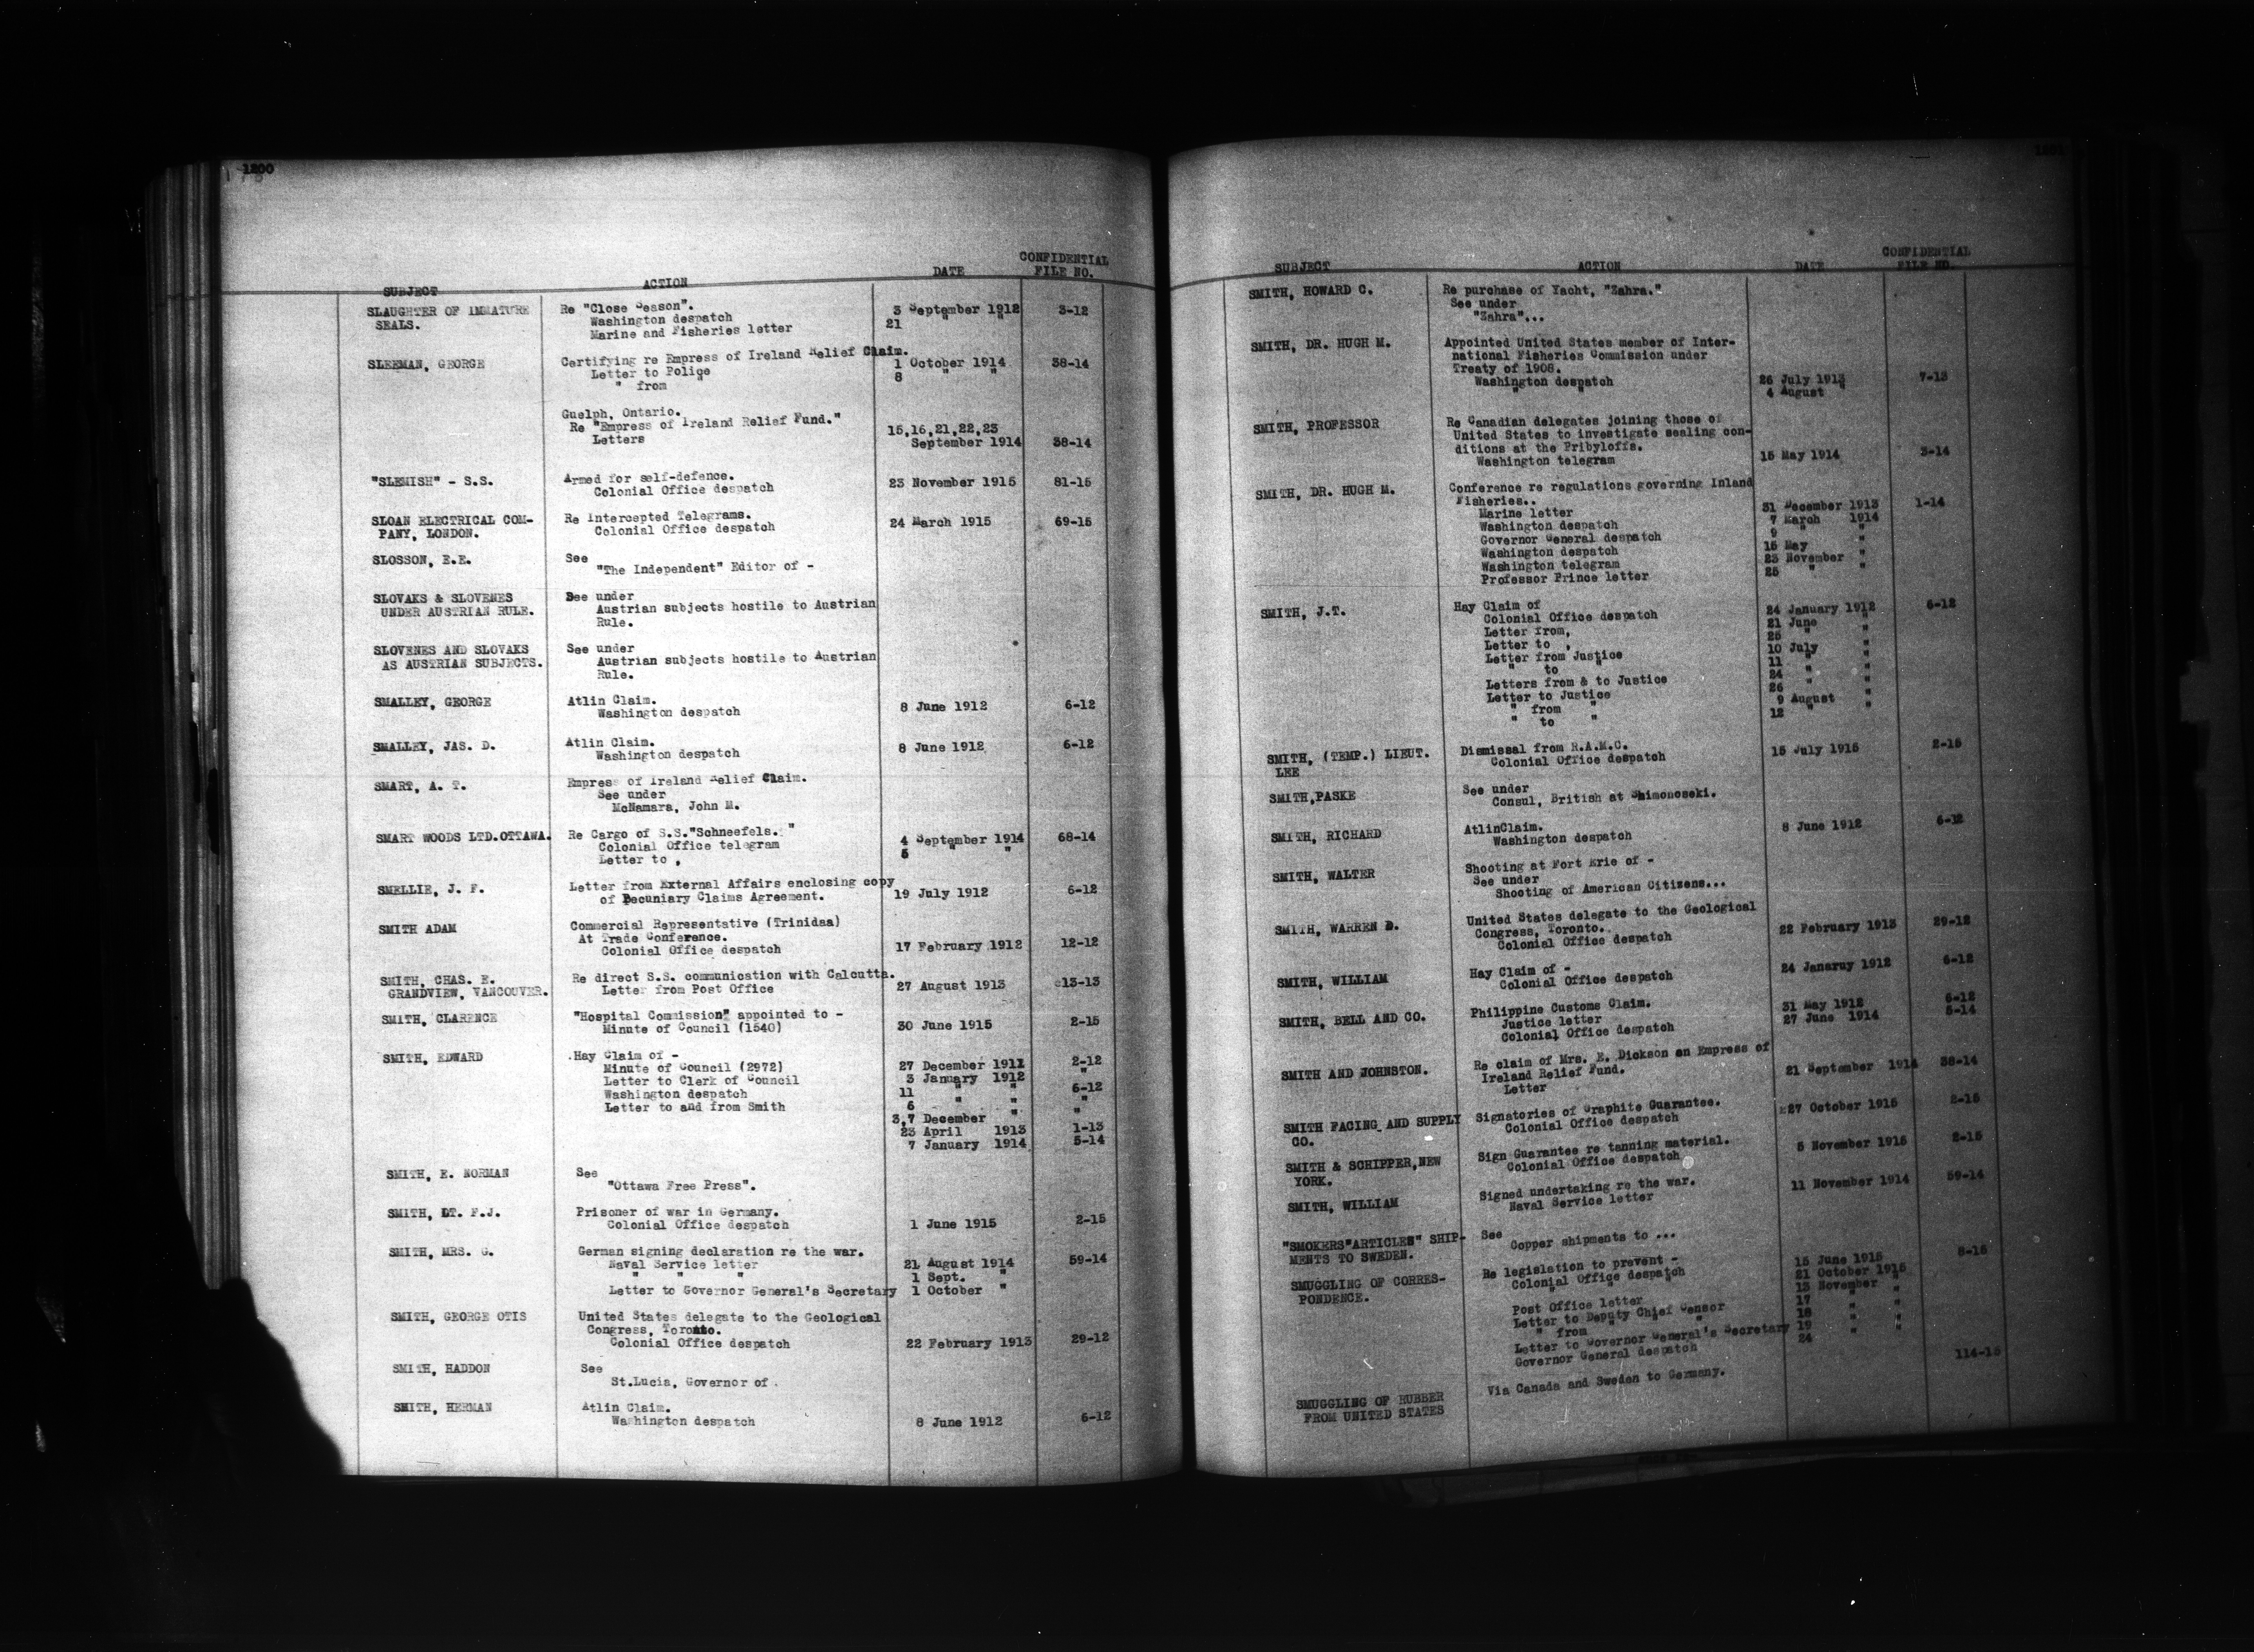 1200
SUBJECT ACTION DATE CONFIDENTIAL FILE NO.
SLAUGHTER OF IMMATURE Re "Close Season".
SEALS. Washington despatch 3 September 1912 3-12
Marine and Fisheries letter 21 " "
SLEEMAN, GEORGE Certifying re Empress of Ireland Relief Claim.
Letter to Police 1 October 1914 38-14
" from " 8 " "
Guelph, Ontario.
Re "Empress of Ireland Relief Fund." 15,16,21,22,23
Letters September 1914 38-14
"SLEMISH" - S.S. Armed for self-defence.
Colonial Office despatch 23 November 1915 81-15
SLOAN ELECTRICAL COM- Re Intercepted Telegrams.
PANY, LONDON. Colonial Office despatch 24 March 1915 69-15
SLOSSON, E.E. See
"The Independent" Editor of -
SLOVAKS & SLOVENES See under
UNDER AUSTRIAN RULE. Austrian subjects hostile to Austrian
Rule.
SLOVENES AND SLOVAKS See under
AS AUSTRIAN SUBJECTS. Austrian subjects hostile to Austrian
Rule.
SMALLEY, GEORGE Atlin Claim.
Washington despatch 8 June 1912 6-12
SMALLEY, JAS. D. Atlin Claim.
Washington despatch 8 June 1912 6-12
SMART, A. T. Empress of Ireland Relief Claim.
See under
McNamara, John M.
SMART WOODS LTD.OTTAWA. Re Cargo of S.S."Schneefels."
Colonial Office telegram 4 September 1914 68-14
Letter to , 5 " "
SMELLIE, J. F. Letter from External Affairs enclosing copy
of Pecuniary Claims Agreement. 19 July 1912 6-12
SMITH ADAM Commercial Representative (Trinidad)
At Trade Conference.
Colonial Office despatch 17 February 1912 12-12
SMITH, CHAS. E. Re direct S.S. communication with Calcutta.
GRANDVIEW, VANCOUVER. Letter from Post Office 27 August 1913 13-13
SMITH, CLARENCE "Hospital Commission" appointed to -
Minute of Council (1540) 30 June 1915 2-15
SMITH, EDWARD Hay Claim of -
Minute of Council (2972) 27 December 1911 2-12
Letter to Clerk of Council 3 January 1912 "
Washington despatch 11 " " 6-12
Letter to and from Smith 6 " " "
3,7 December " "
23 April 1913 1-13
7 January 1914 5-14
SMITH, E. NORMAN See
"Ottawa Free Press".
SMITH, LT. F.J. Prisoner of war in Germany.
Colonial Office despatch 1 June 1915 2-15
SMITH, MRS. G. German signing declaration re the war.
Naval Service letter 21 August 1914 59-14
" " " 1 Sept. "
Letter to Governor General's Secretary 1 October "
SMITH, GEORGE OTIS United States delegate to the Geological
Congress, Toronto.
Colonial Office despatch 22 February 1913 29-12
SMITH, HADDON See
St.Lucia, Governor of
SMITH, HERMAN Atlin Claim.
Washington despatch 8 June 1912 6-12
1201
SUBJECT ACTION DATE CONFIDENTIAL FILE NO.
SMITH, HOWARD C. Re purchase of Yacht, "Zahra."
See under
"Zahra"...
SMITH, DR. HUGH M. Appointed United States member of Inter-
national Fisheries Commission under
Treaty of 1908.
Washington despatch 26 July 1913 7-13
" " 4 August "
SMITH, PROFESSOR Re Canadian delegates joining those of
United States to investigate sealing con-
ditions at the Pribyloffs.
Washington telegram 15 May 1914 3-14
SMITH, DR. HUGH M. Conference re regulations governing Inland
Fisheries..
Marine letter 31 December 1913 1-14
Washington despatch 7 March 1914
Governor General despatch 9 " "
Washington despatch 15 May "
Washington telegram 23 November "
Professor Prince letter 25 " "
SMITH, J.T. Hay Claim of
Colonial Office despatch 24 January 1912 6-12
Letter from, 21 June "
Letter to , 25 " "
Letter from Justice 10 July "
" to " 11 " "
Letters from & to Justice 24 " "
Letter to Justice 26 " "
" from " 9 August "
" to " 12 " "
SMITH, (TEMP.) LIEUT. Dismissal from R.A.M.C.
LEE Colonial Office despatch 15 July 1915 2-15
SMITH,PASKE See under
Consul, British at Shimonoseki.
SMITH, RICHARD AtlinClaim.
Washington despatch 8 June 1912 6-12
SMITH, WALTER Shooting at Fort Erie of -
See under
Shooting of American Citizens...
SMITH, WARREN D. United States delegate to the Geological
Congress, Toronto.
Colonial Office despatch 22 February 1913 29-12
SMITH, WILLIAM Hay Claim of -
Colonial Office despatch 24 Janaruy 1912 6-12
SMITH, BELL AND CO. Philippine Customs Claim.
Justice letter 31 May 1912 6-12
Colonial Office despatch 27 June 1914 5-14
SMITH AND JOHNSTON. Re claim of Mrs. E. Dickson on Empress of
Ireland Relief Fund.
Letter 21 September 1914 38-14
SMITH FACING AND SUPPLY Signatories of Graphite Guarantee.
CO. Colonial Office despatch 27 October 1915 2-15
SMITH & SCHIPPER,NEW Sign Guarantee re tanning material.
YORK. Colonial Office despatch 5 November 1915 2-15
SMITH, WILLIAM Signed undertaking re the war.
Naval Service letter 11 November 1914 59-14
"SMOKERS"ARTICLES" SHIP- See
MENTS TO SWEDEN. Copper shipments to ...
SMUGGLING OF CORRES- Re legislation to prevent -
PONDENCE. Colonial Office despatch 15 June 1915 8-15
" " " 21 October 1915
Post Office letter 13 November "
Letter to Deputy Chief Censor 17 " "
" from " " " 18 " "
Letter to Governor General's Secretary 19 " "
Governor General despatch 24
SMUGGLING OF RUBBER Via Canada and Sweden to Germany. 114-15
FROM UNITED STATES